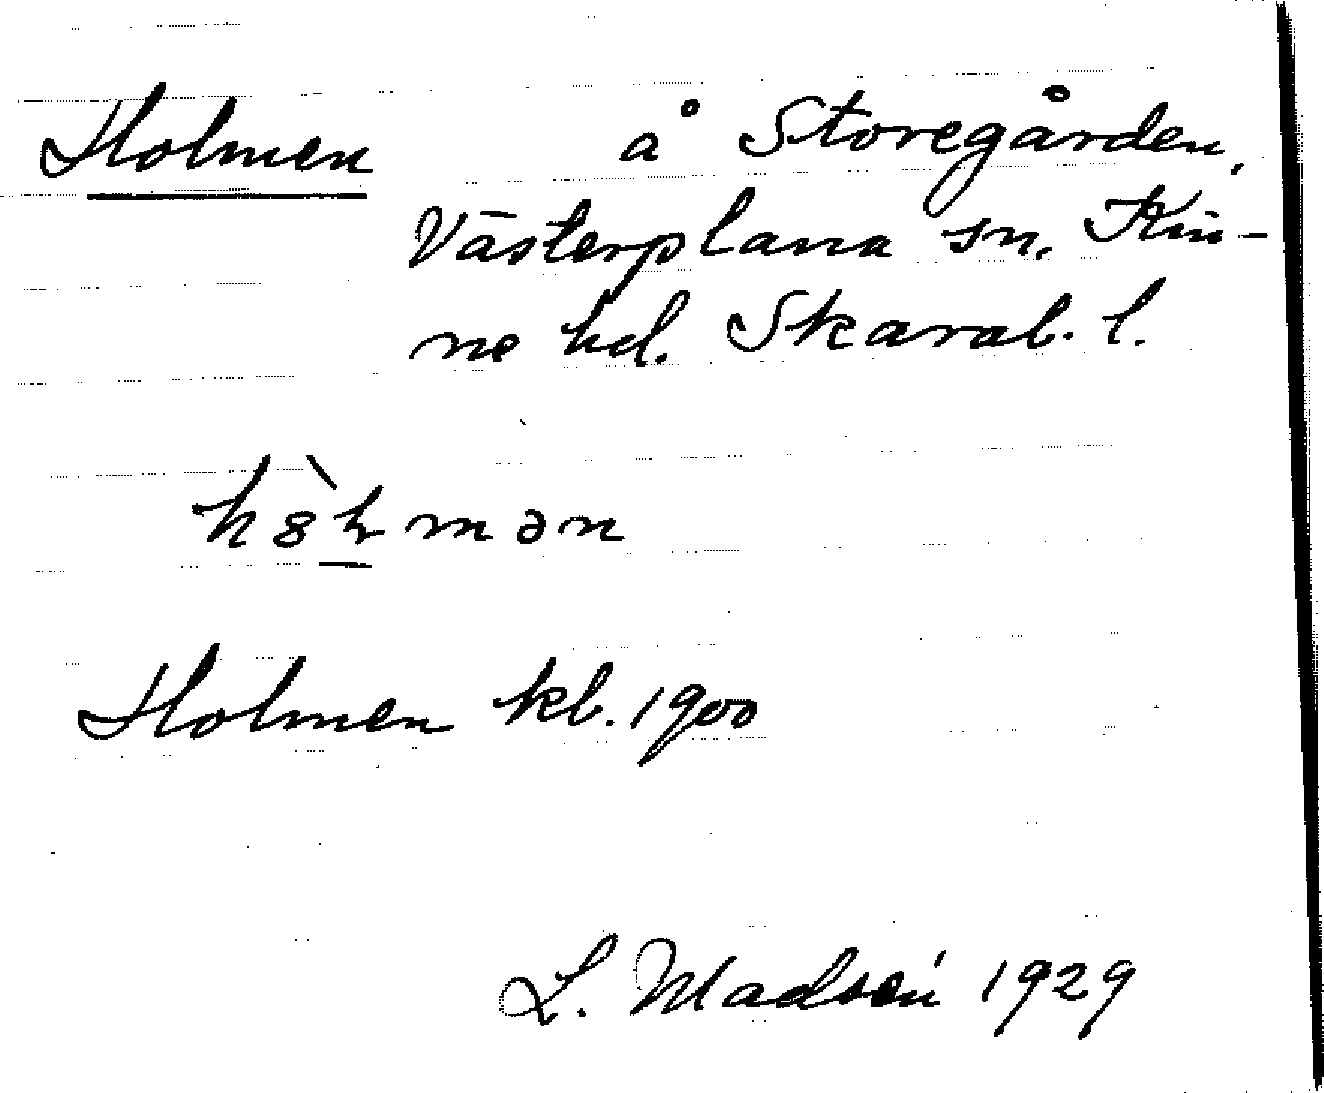 Holmen å Storegården,
Västerplana sn. Kin-
ne hd. Skarab. l.
Holmen kb. 1900
L. Madsén 1929